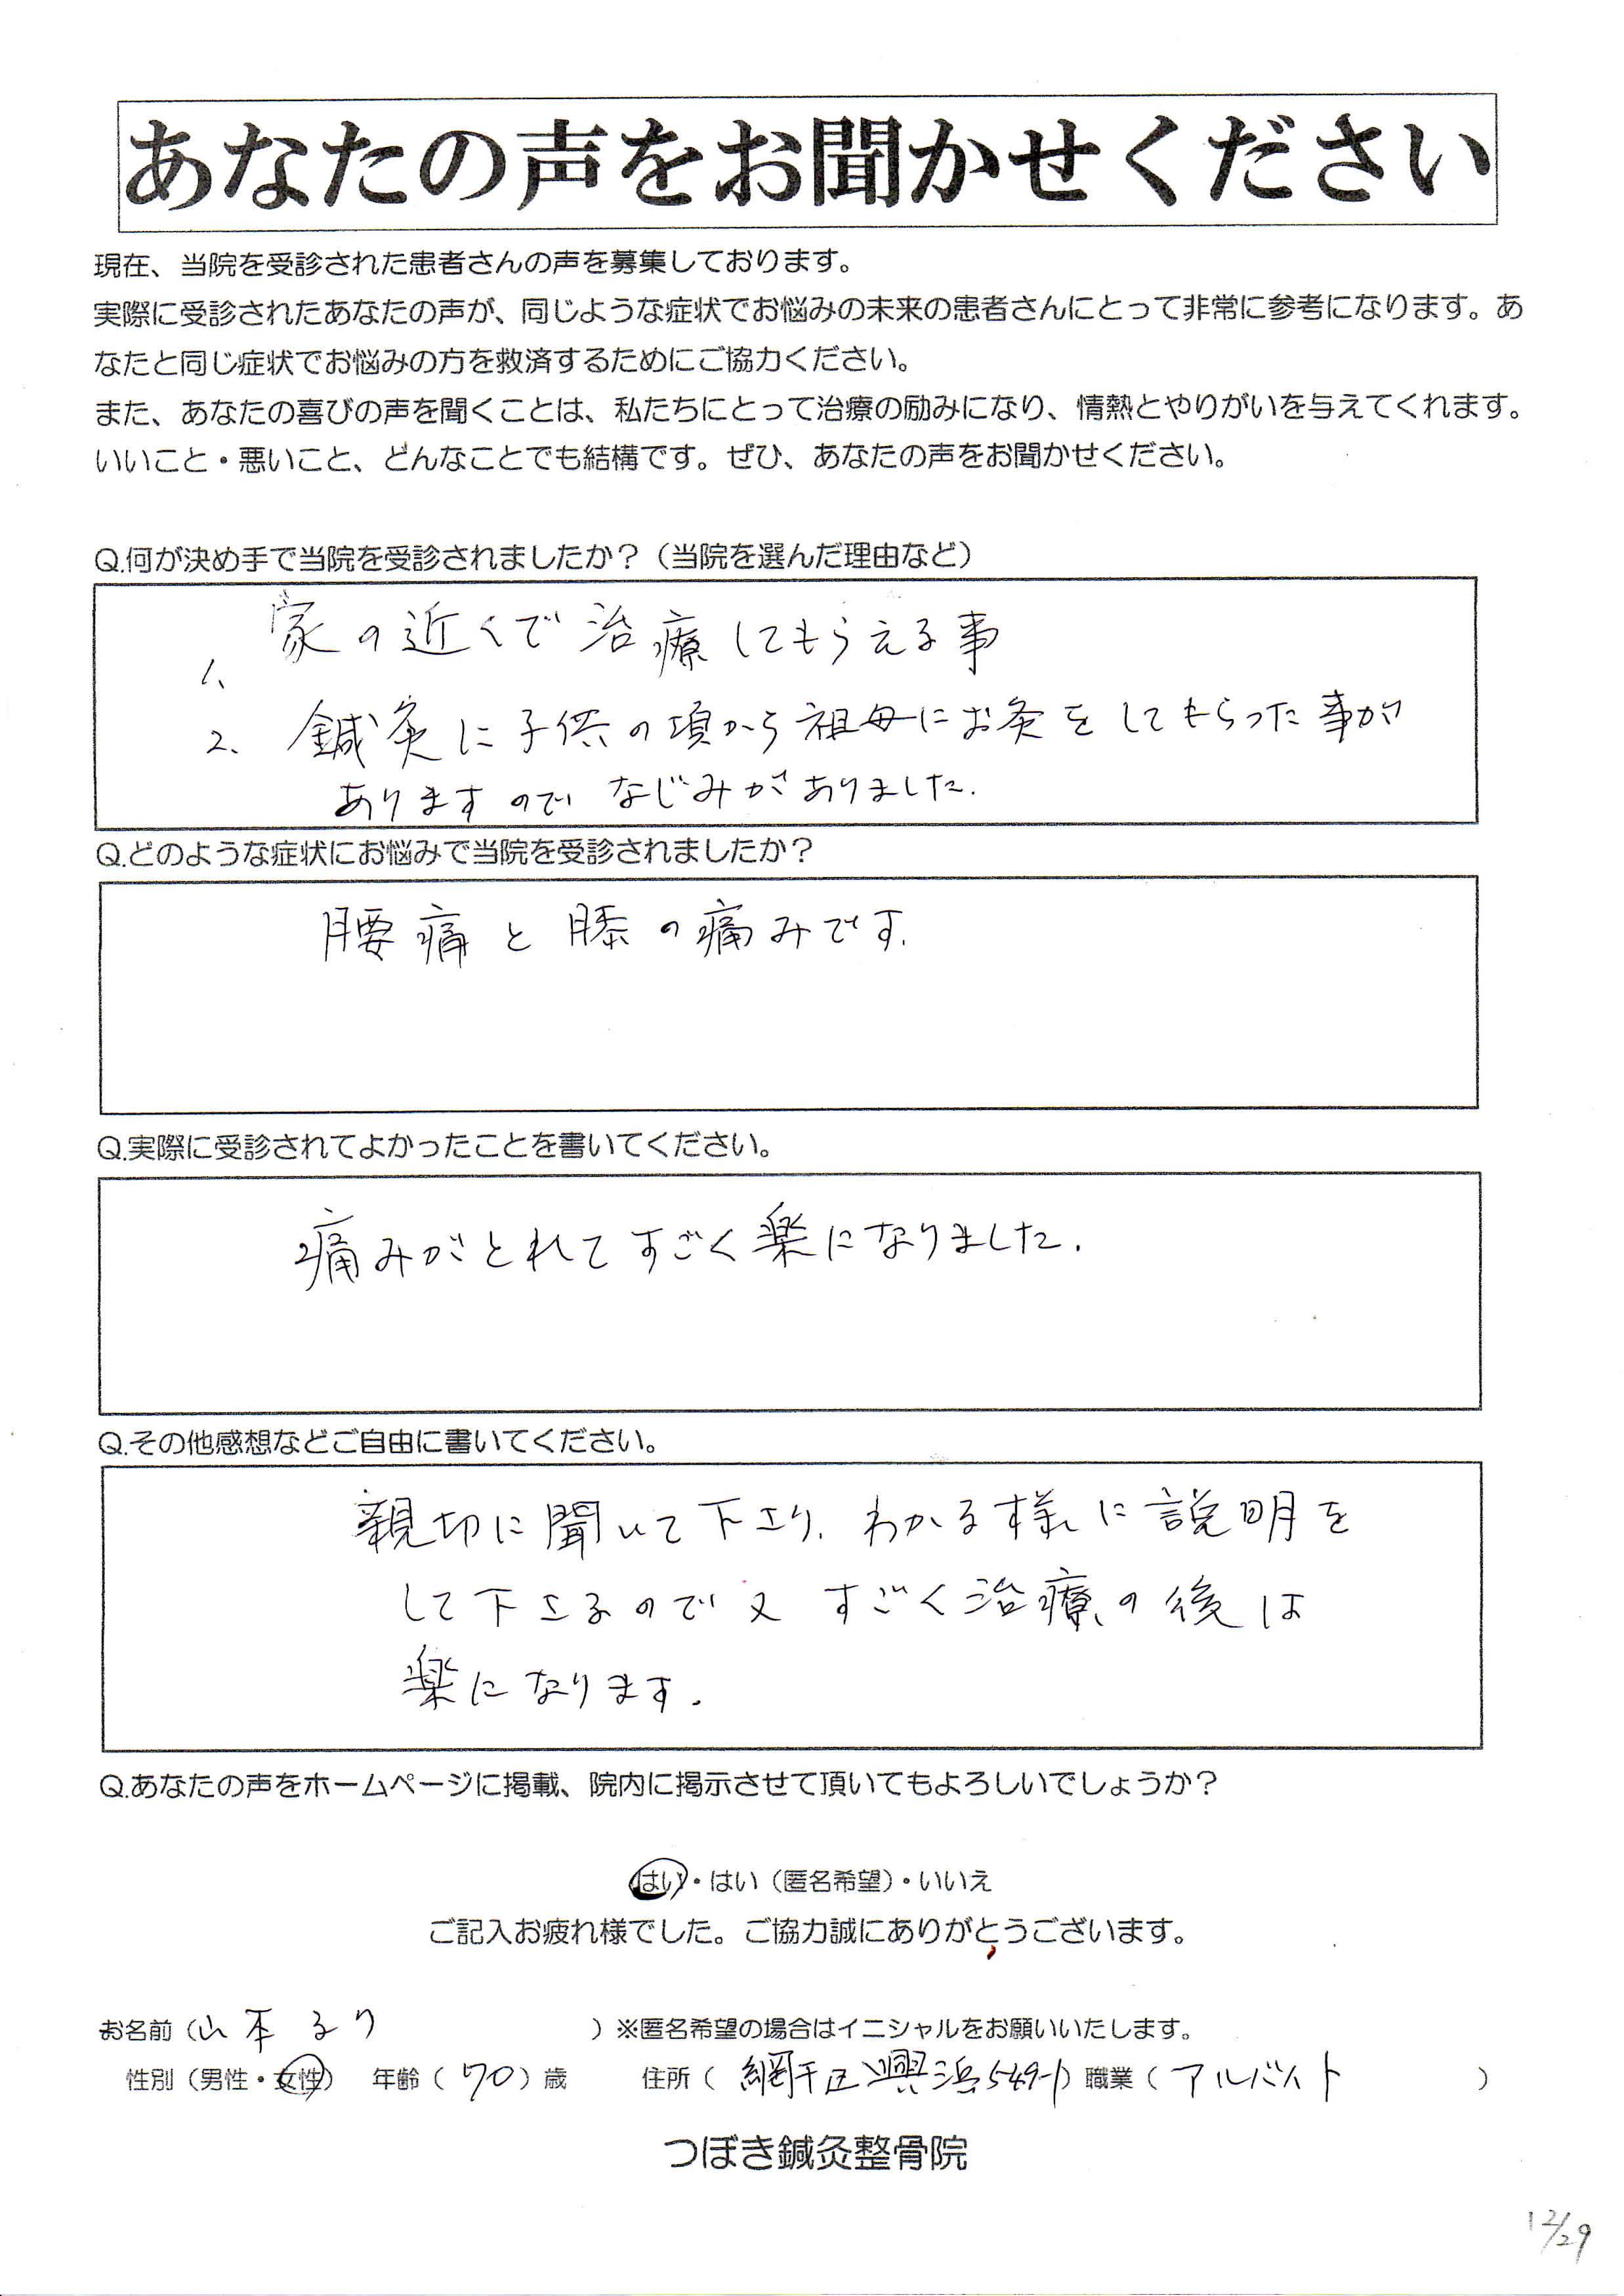 あなたの声をお聞かせください
現在、当院を受診された患者さんの声を募集しております。
実際に受診されたあなたの声が、同じような症状でお悩みの未来の患者さんにとって非常に参考になります。あ
なたと同じ症状でお悩みの方を救済するためにご協力ください。
また、あなたの喜びの声を聞くことは、私たちにとって治療の励みになり、情熱とやりがいを与えてくれます。
いいこと・悪いこと、どんなことでも結構です。ぜひ、あなたの声をお聞かせください。
Q.何が決め手で当院を受診されましたか？（当院を選んだ理由など）
1、家の近くで治療してもらえる事
2、鍼灸に子供の頃から祖母にお灸をしてもらった事が
ありますのでなじみがありました.
Q.どのような症状にお悩みで当院を受診されましたか？
腰痛と膝の痛みです.
Q.実際に受診されてよかったことを書いてください。
痛みがとれてすごく楽になりました.
Q.その他感想などご自由に書いてください。
親切に聞いて下さり、わかる様に説明を
して下さるので又すごく治療の後は
楽になります.
Q.あなたの声をホームページに掲載、院内に掲示させて頂いてもよろしいでしょうか？
はい・はい（匿名希望）・いいえ
ご記入お疲れ様でした。ご協力誠にありがとうございます。
お名前（山本るり）※匿名希望の場合はイニシャルをお願いいたします。
性別（男性・女性） 年齢（70）歳 住所（網干区興浜549-1）職業（アルバイト）
つぼき鍼灸整骨院
12/29